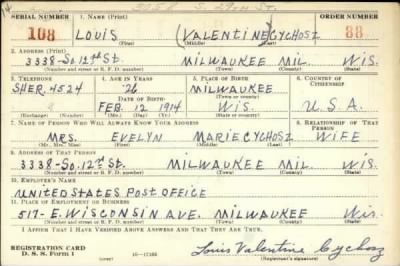 3058 S. 29th St.
SERIAL NUMBER 1. NAME (Print) ORDER NUMBER
108 LOUIS (VALENTINE) CYCHOSZ 88
(First) (Middle) (Last)
2. ADDRESS (Print)
3338-So. 12th St. MILWAUKEE MIL. WIS.
(Number and street or R. F. D. number) (Town) (County) (State)
3. TELEPHONE 4. AGE IN YEARS 5. PLACE OF BIRTH 6. COUNTRY OF CITIZENSHIP
SHER. 4524 26 MILWAUKEE
DATE OF BIRTH (Town or county)
FEB. 12 1914 WIS. U.S.A.
(Exchange) (Number) (Mo.) (Day) (Yr.) (State or country)
7. NAME OF PERSON WHO WILL ALWAYS KNOW YOUR ADDRESS 8. RELATIONSHIP OF THAT PERSON
MRS. EVELYN MARIE CYCHOSZ WIFE
(Mr., Mrs., Miss) (First) (Middle) (Last)
9. ADDRESS OF THAT PERSON
3338-So. 12th St. MILWAUKEE MIL WIS.
(Number and street or R. F. D. number) (Town) (County) (State)
10. EMPLOYER'S NAME
UNITED STATES POST OFFICE
11. PLACE OF EMPLOYMENT OR BUSINESS
517-E. WISCONSIN AVE. MILWAUKEE WIS.
(Number and street or R. F. D. number) (Town) (County) (State)
I AFFIRM THAT I HAVE VERIFIED ABOVE ANSWERS AND THAT THEY ARE TRUE.
REGISTRATION CARD Louis Valentine Cychosz
D. S. S. Form 1 (over) 16-17105 (Registrant's signature)